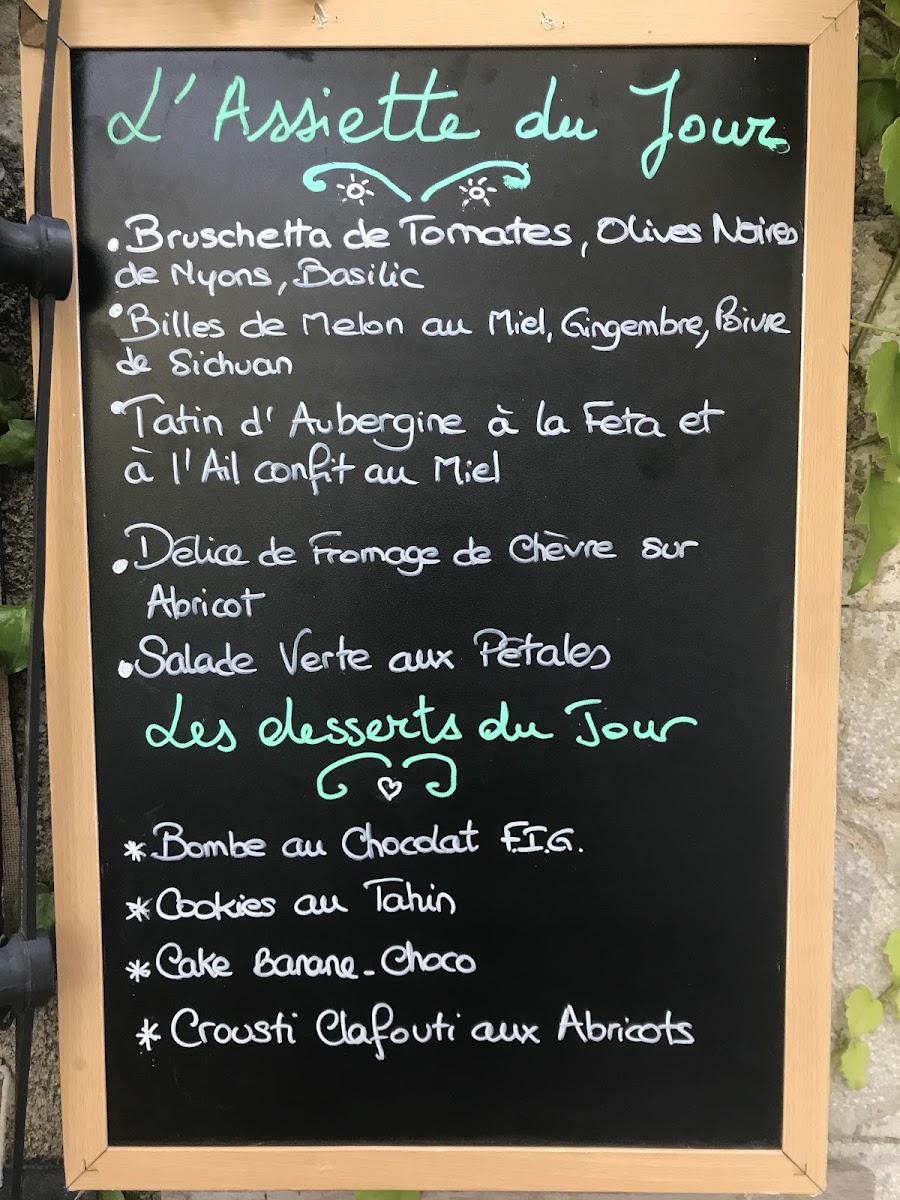 L'Assiette du Jour
• Bruschetta de Tomates, Olives Noires
de Nyons, Basilic
• Billes de Melon au Miel, Gingembre, Poivre
de Sichuan
• Tatin d'Aubergine à la Feta et
à l'Ail confit au Miel
• Délice de Fromage de Chèvre sur
Abricot
• Salade Verte aux Pétales
Les desserts du Jour
* Bombe au Chocolat F.I.G.
* Cookies au Tahin
* Cake Banane-Choco
* Crousti Clafouti aux Abricots